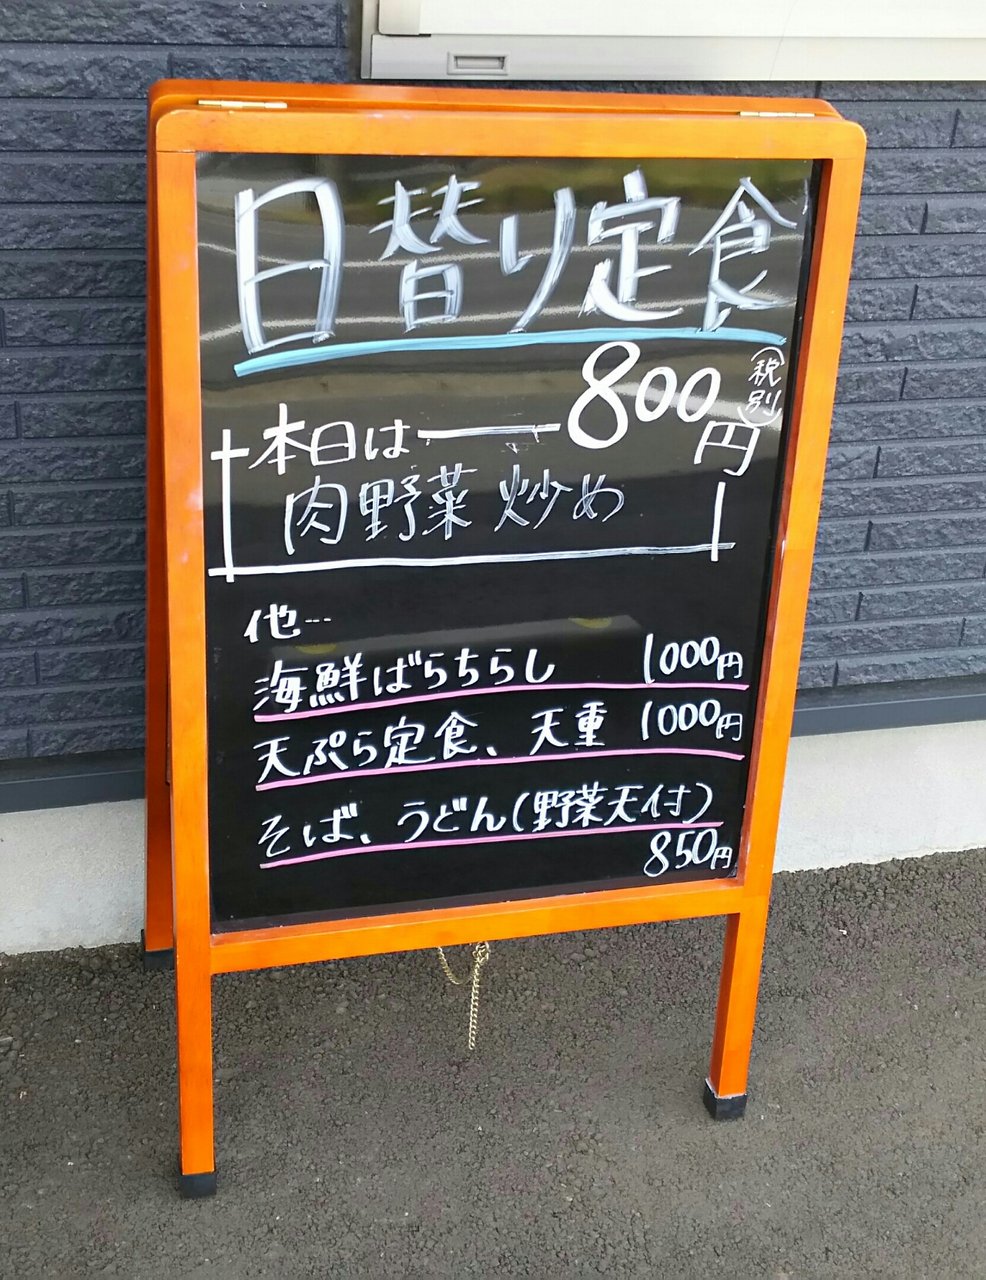 日替り定食
800円(税別)
本日は
肉野菜炒め
他…
海鮮ばらちらし 1000円
天ぷら定食、天重 1000円
そば、うどん(野菜天付)
850円